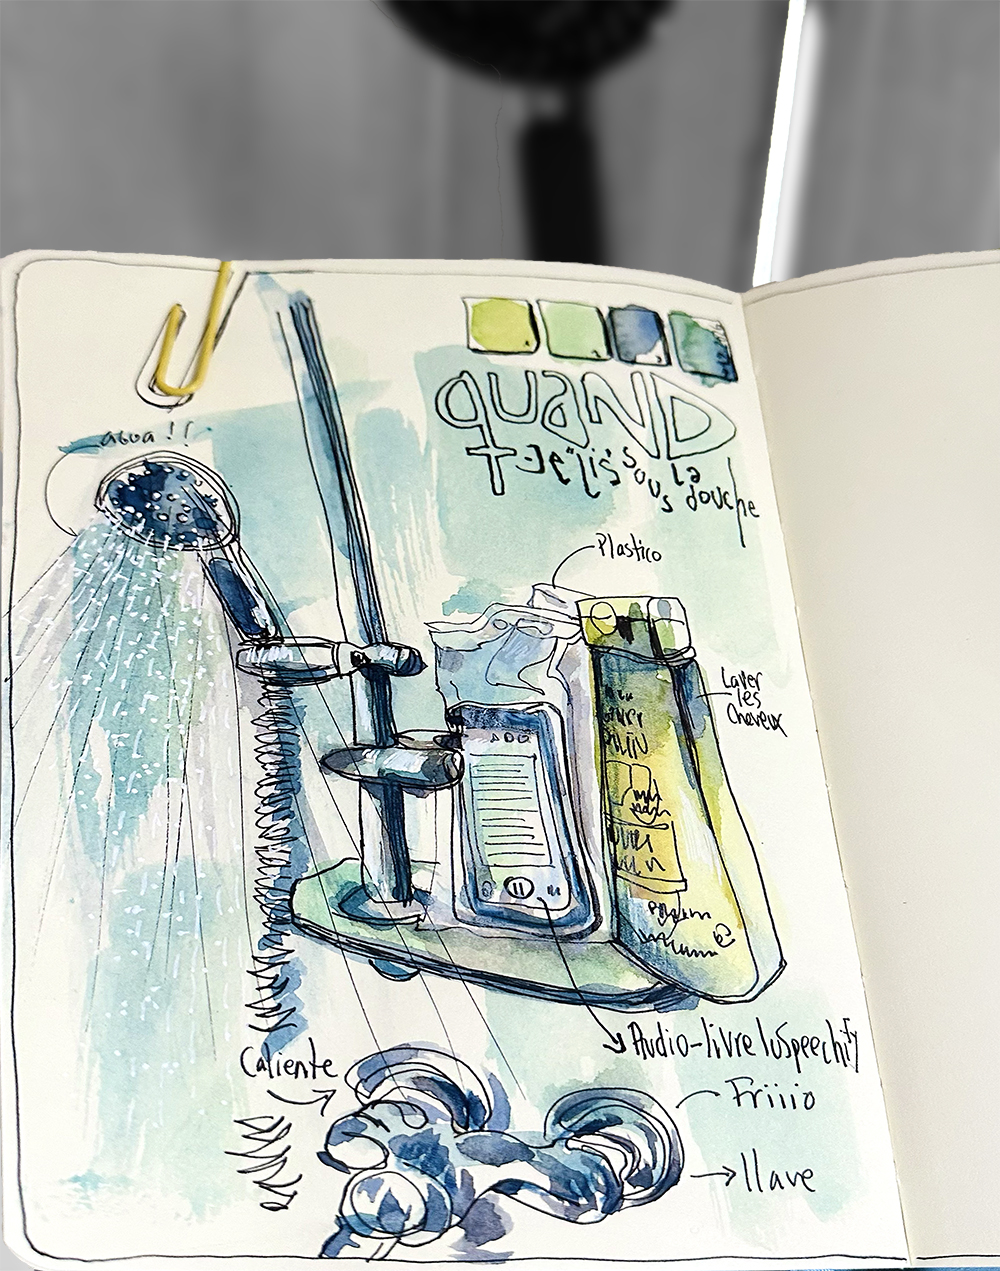 agua !!
quand
+ je lis sous la douche
Plastico
Laver
les
cheveux
Audio-livre lu Speechify
Caliente
Friiio
llave